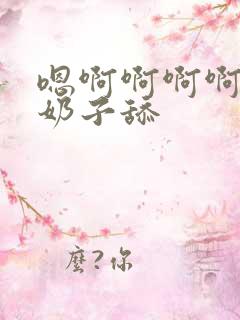 嗯啊啊啊啊
奶子舔
麽?你